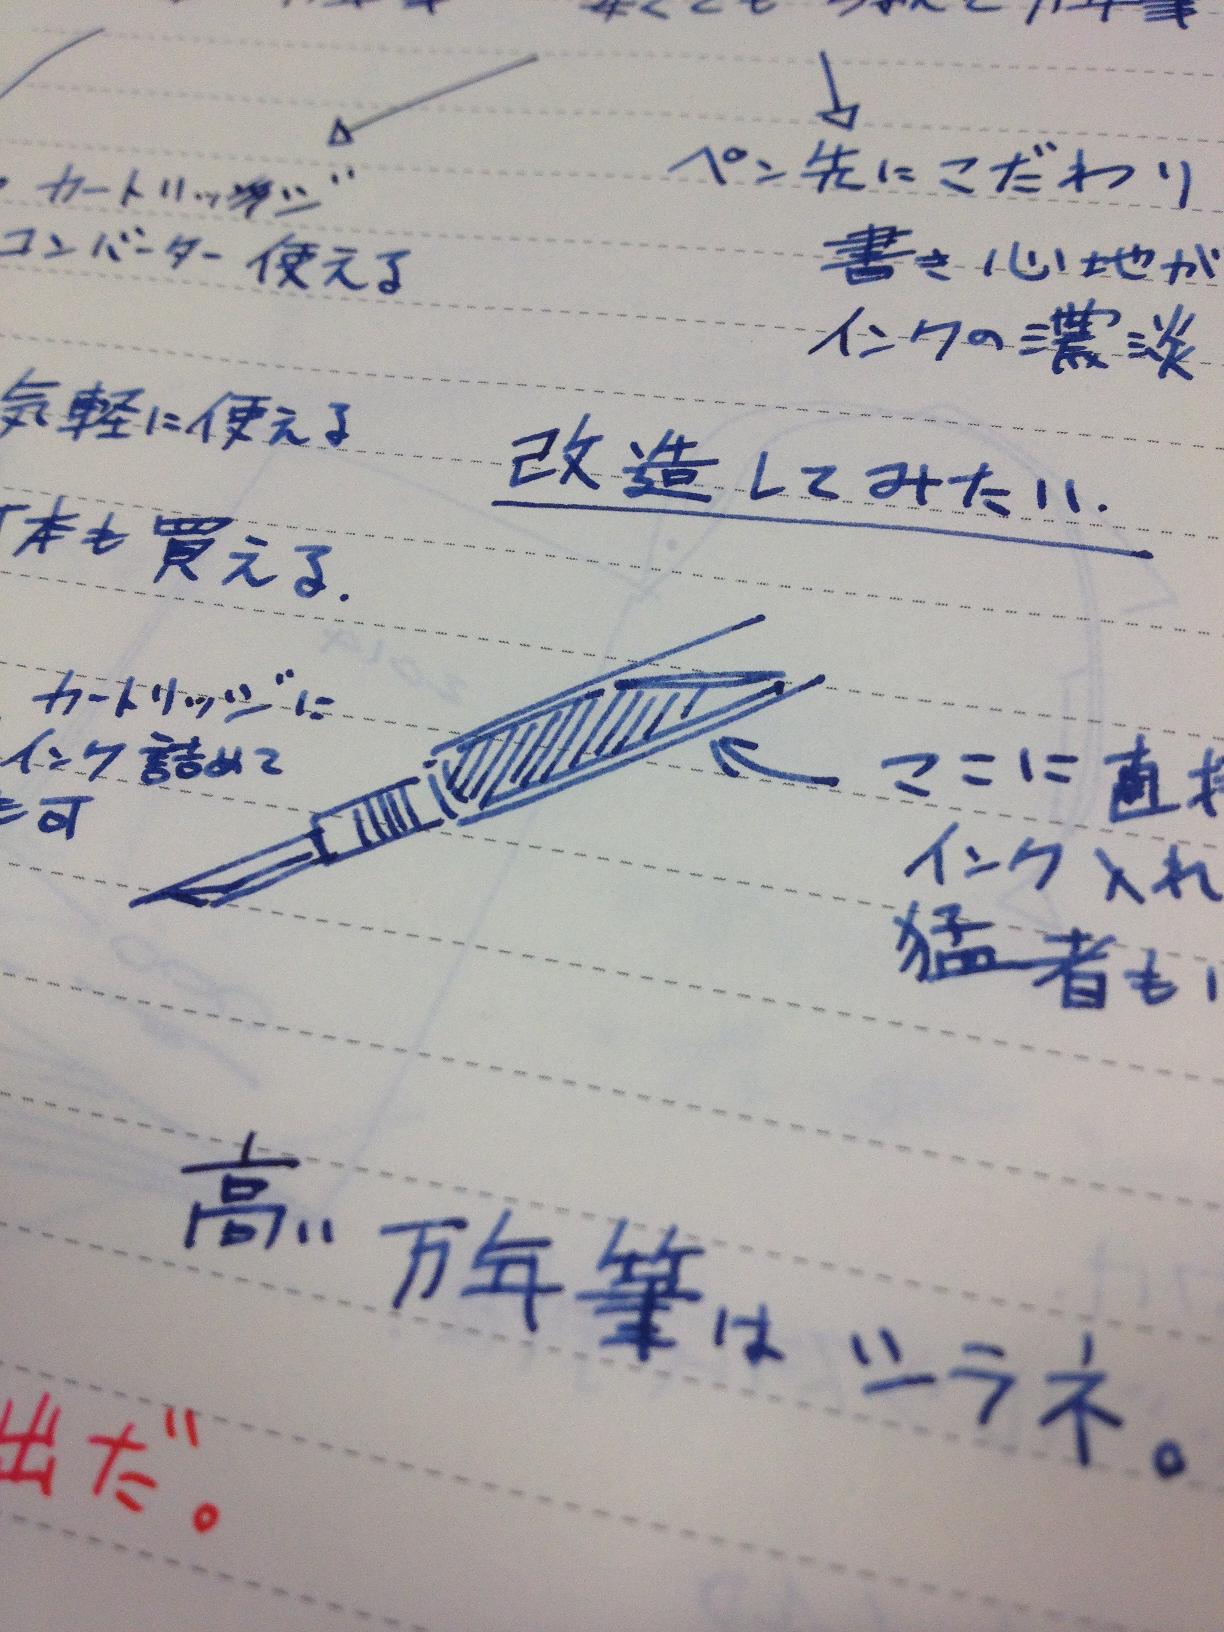 万年筆
カートリッジ
コンバーター使える
ペン先にこだわり
書き心地が
インクの濃淡
気軽に使える
改造してみたい.
本も買える.
カートリッジに
インク詰めて
可
ここに直接
インク入れ
猛者もい
高い万年筆はツラネ。
出だ。